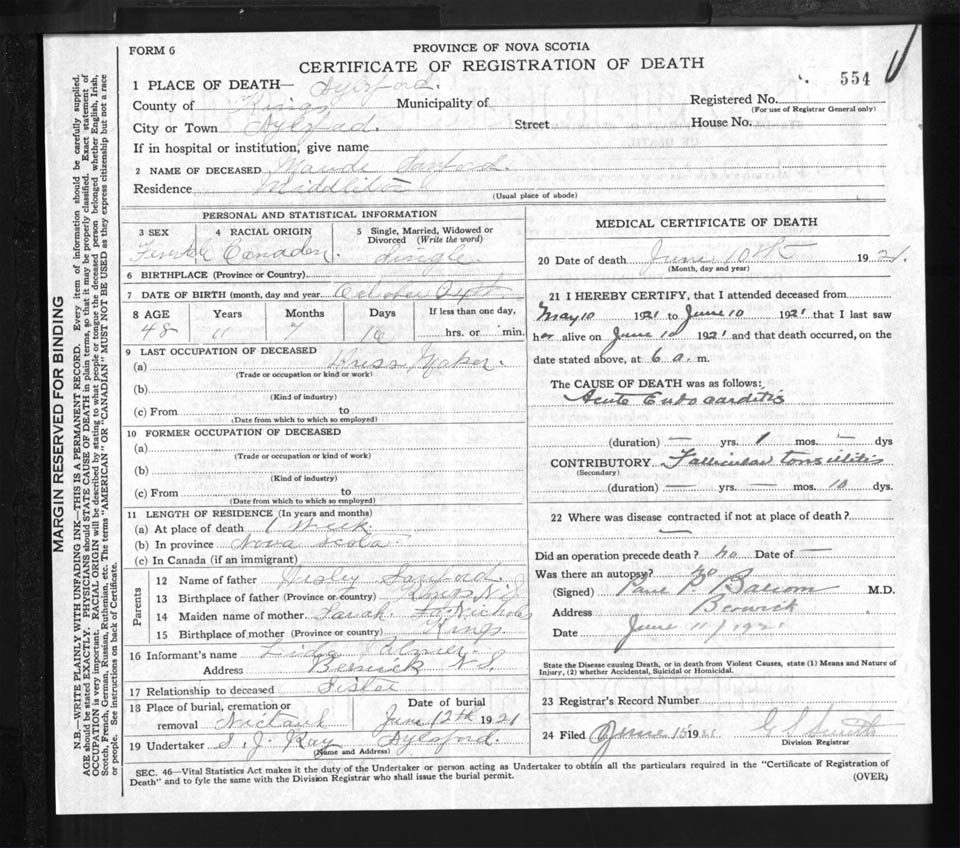 FORM 6
PROVINCE OF NOVA SCOTIA
CERTIFICATE OF REGISTRATION OF DEATH
554
1 PLACE OF DEATH— Aylsford.
County of Kings Municipality of Registered No.
(For use of Registrar General only)
City or Town Aylsford. Street House No.
If in hospital or institution, give name
2 NAME OF DECEASED Maude Sanford.
Residence Middleton
(Usual place of abode)
PERSONAL AND STATISTICAL INFORMATION
3 SEX 4 RACIAL ORIGIN 5 Single, Married, Widowed or Divorced (Write the word)
Female Canaden. Single.
6 BIRTHPLACE (Province or Country)
7 DATE OF BIRTH (month, day and year October 24th
8 AGE Years Months Days If less than one day,
48 11 7 16 hrs. or min.
9 LAST OCCUPATION OF DECEASED
(a) Dress Maker.
(Trade or occupation or kind or work)
(b)
(Kind of industry)
(c) From to
(Date from which to which so employed)
10 FORMER OCCUPATION OF DECEASED
(a)
(Trade or occupation or kind of work)
(b)
(Kind of industry)
(c) From to
(Date from which to which so employed)
11 LENGTH OF RESIDENCE (In years and months)
(a) At place of death 1 Week.
(b) In province Nova Scota
(c) In Canada (if an immigrant)
Parents
12 Name of father Sanford.
13 Birthplace of father (Province or country) Kings N.S
14 Maiden name of mother Sarah Nichols
15 Birthplace of mother (Province or country) Kings
16 Informant's name
Address Berwick N S
17 Relationship to deceased Sister
18 Place of burial, cremation or Date of burial
removal Nictaux June 12th 1921
19 Undertaker S. J. Ray Aylsford.
(Name and Address)
MEDICAL CERTIFICATE OF DEATH
20 Date of death June 10th 1921.
(Month, day and year)
21 I HEREBY CERTIFY, that I attended deceased from
May 10 1921 to June 10 1921 that I last saw
her alive on June 10 1921 and that death occurred, on the
date stated above, at 6 a. m.
The CAUSE OF DEATH was as follows:
Acute Endocarditis
(duration) — yrs. 1 mos. — dys
CONTRIBUTORY Follicular tonsillitis
(Secondary)
(duration) — yrs. — mos. 10 dys.
22 Where was disease contracted if not at place of death?
—
Did an operation precede death? no Date of —
Was there an autopsy? no
(Signed) Balcom M.D.
Address Berwick
Date June 11/1921
State the Disease causing Death, or in death from Violent Causes, state (1) Means and Nature of
Injury, (2) whether Accidental, Suicidal or Homicidal.
23 Registrar's Record Number
24 Filed June 1921
Division Registrar
SEC. 46—Vital Statistics Act makes it the duty of the Undertaker or person acting as Undertaker to obtain all the particulars required in the "Certificate of Registration of
Death" and to fyle the same with the Division Registrar who shall issue the burial permit.
(OVER)
MARGIN RESERVED FOR BINDING
N.B.—WRITE PLAINLY WITH UNFADING INK—THIS IS A PERMANENT RECORD. Every item of information should be carefully supplied.
AGE should be stated EXACTLY. PHYSICIANS should STATE CAUSE OF DEATH in plain terms, so that it may be properly classified. Exact statement of
OCCUPATION is very important. RACIAL ORIGIN will be described by stating to what people or tongue the deceased person belonged whether English, Irish,
Scotch, French, German, Russian, Ruthenian, etc. The terms "AMERICAN" OR "CANADIAN" MUST NOT BE USED as they express citizenship but not a race
or people. See instructions on back of Certificate.